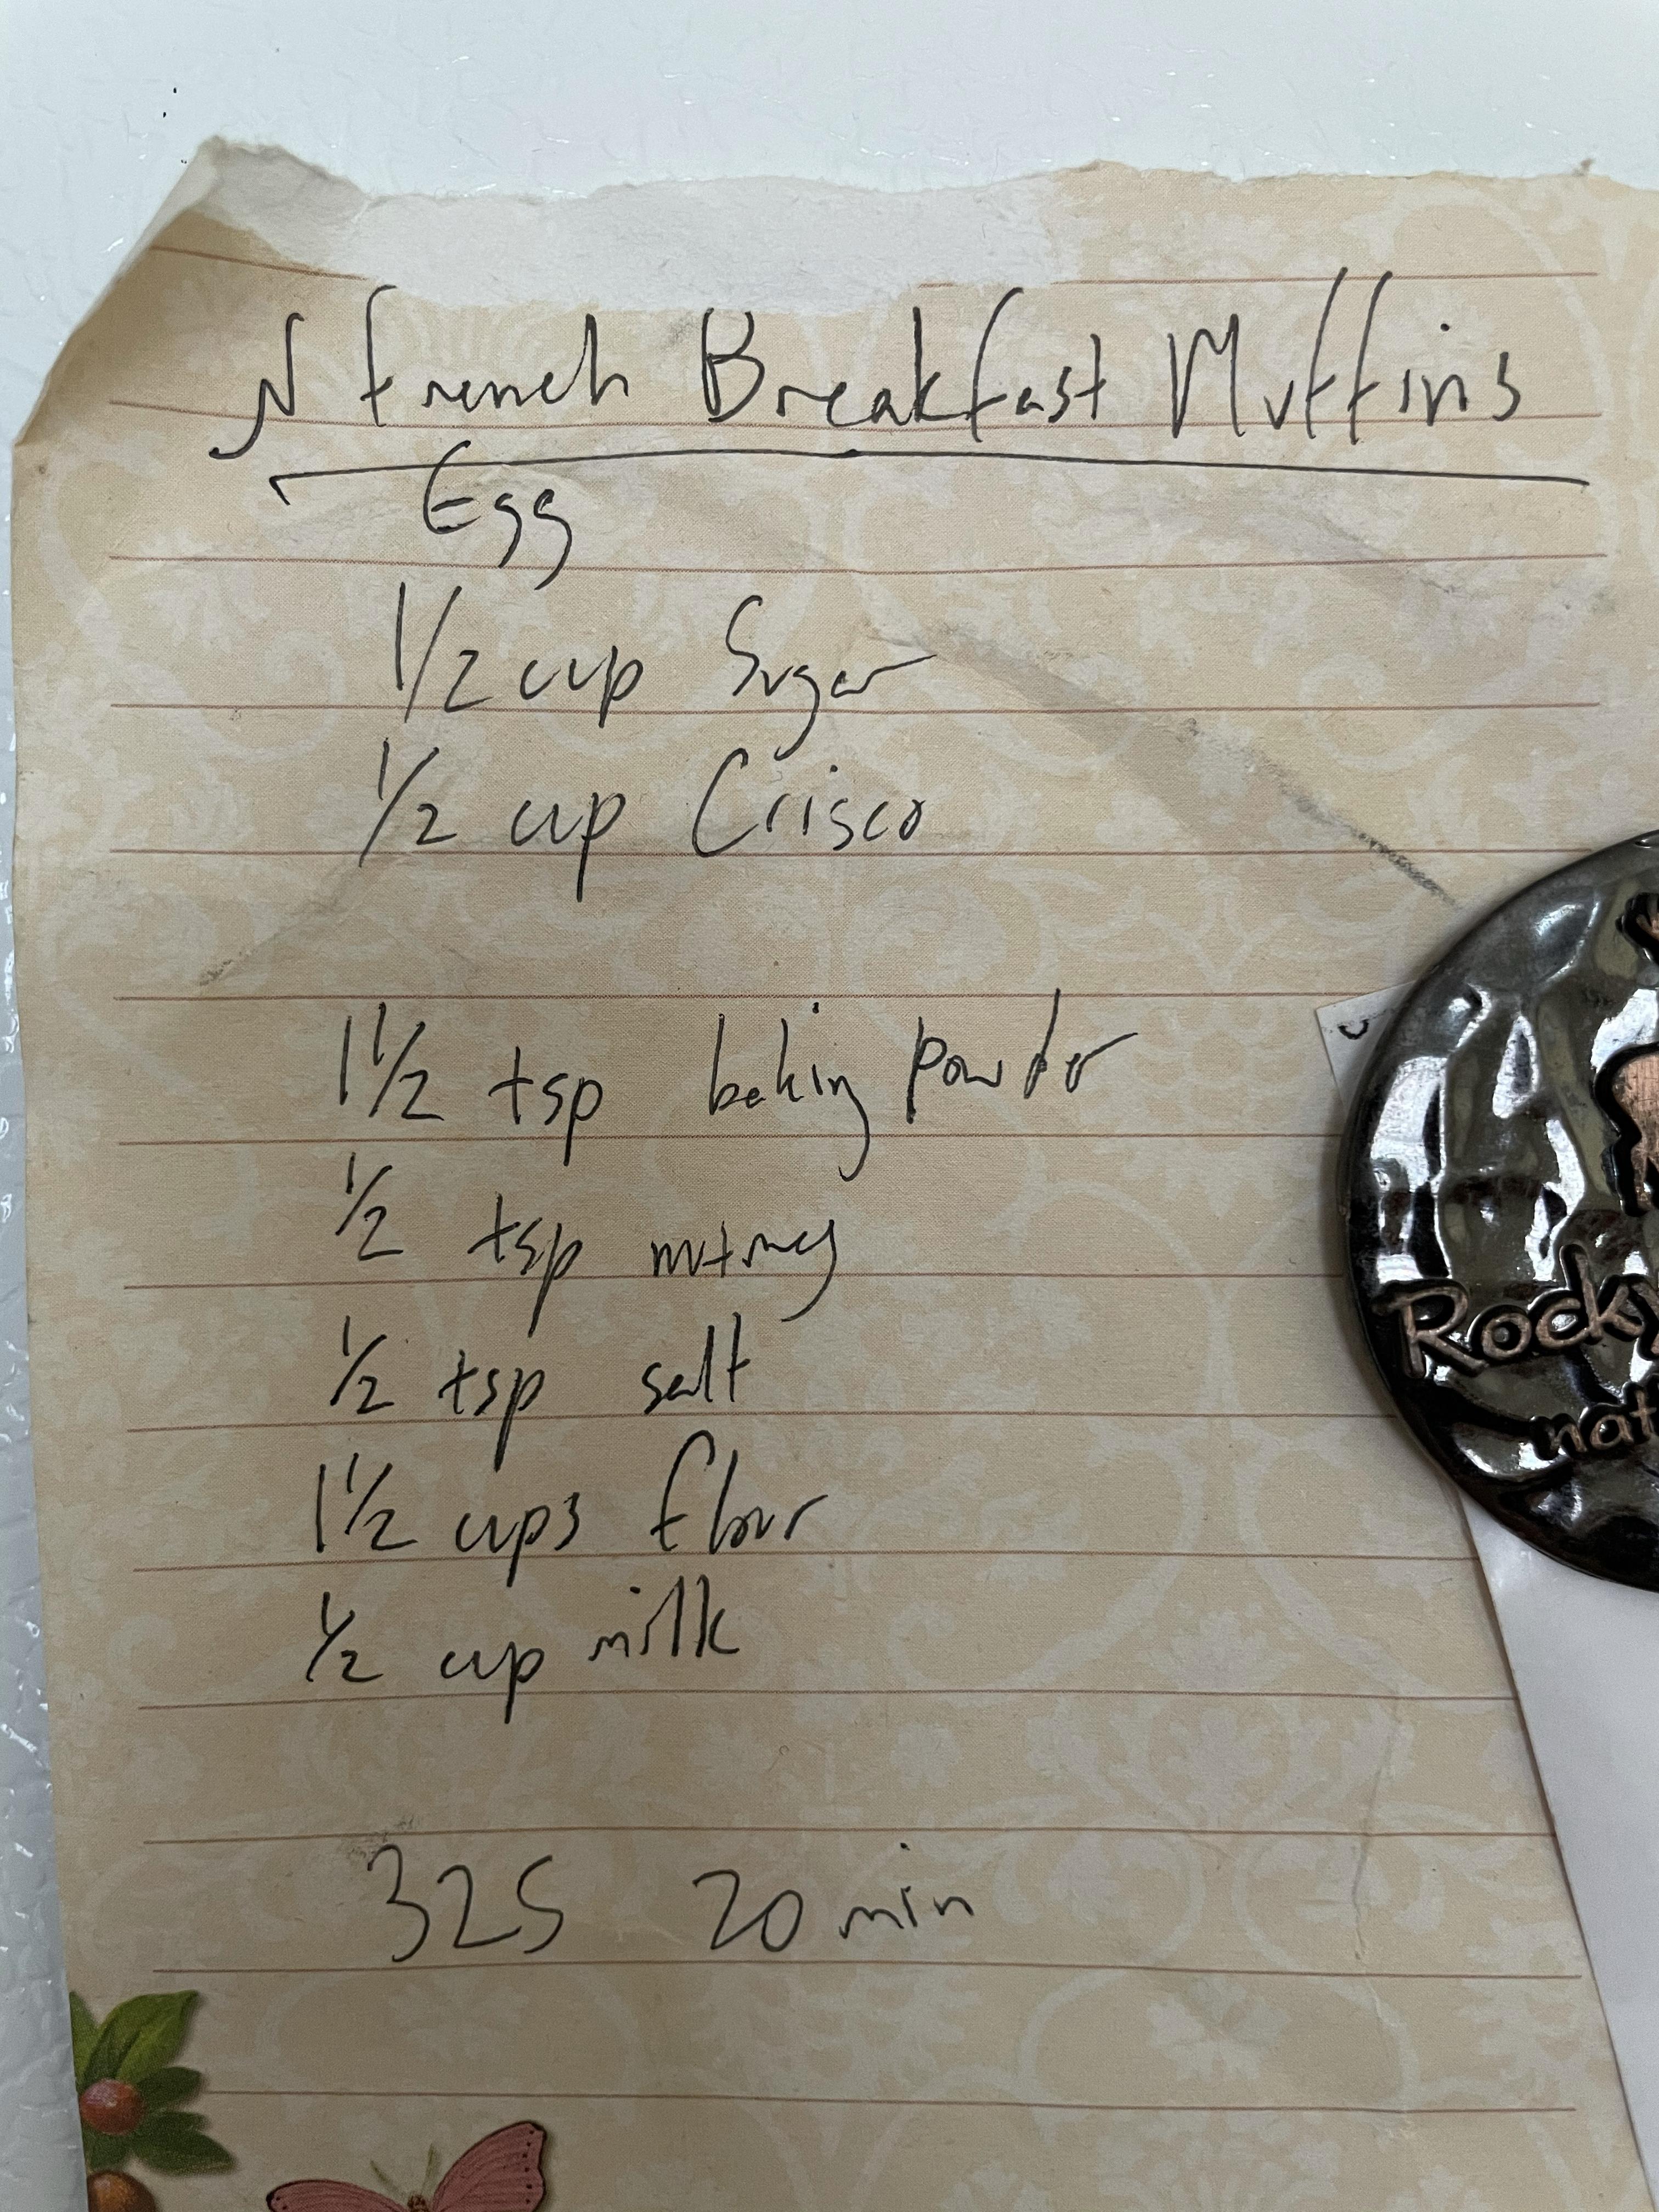 N French Breakfast Muffins
Egg
1/2 cup Sugar
1/2 cup Crisco
1 1/2 tsp baking powder
1/2 tsp nutmeg
1/2 tsp salt
1 1/2 cups flour
1/2 cup milk
325 20 min
Rocky
nat